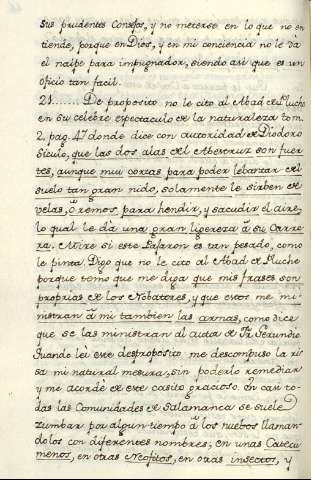 sus prudentes Consejos, y no meterse en lo que no en
tiende, porque en Dios, y en mi conciencia no le da
el naipe para impugnador, siendo asi que es un
oficio tan facil.
21....... De proposito no le cito al Abad de Pluche
en su celebre espectaculo de la naturaleza tom.
2. pag. 47 donde dice con autoridad de Diodoro
Siculo, que las dos alas del Abestruz son fuer
tes, aunque mui cortas para poder lebantar del
suelo tan gran nido, solamente le sirben de
velas, ò remos, para hendir, y sacudir el aire,
lo qual le dà una gran ligereza à su Carre
ra. Mire si este Pajaron es tan pesado, como
le pinta. Digo que no le cito al Abad de Pluche
porque temo que me diga que mis frases son
proprias de los Nobatores, y que estos me mi
nistran à mi tambien las armas, como dice
que se las ministran al autor de Fr. Gerundio.
Quando lei este desproposito me descompuso la ri
sa mi natural mesura, sin poderlo remediar
y me acordè de este casito gracioso. En casi to
das las Comunidades de Salamanca se suele
zumbar por algun tiempo à los nuebos llaman
dolos con diferentes nombres; en unas Catecu
menos, en otras Neofitos, en otras insectos, y